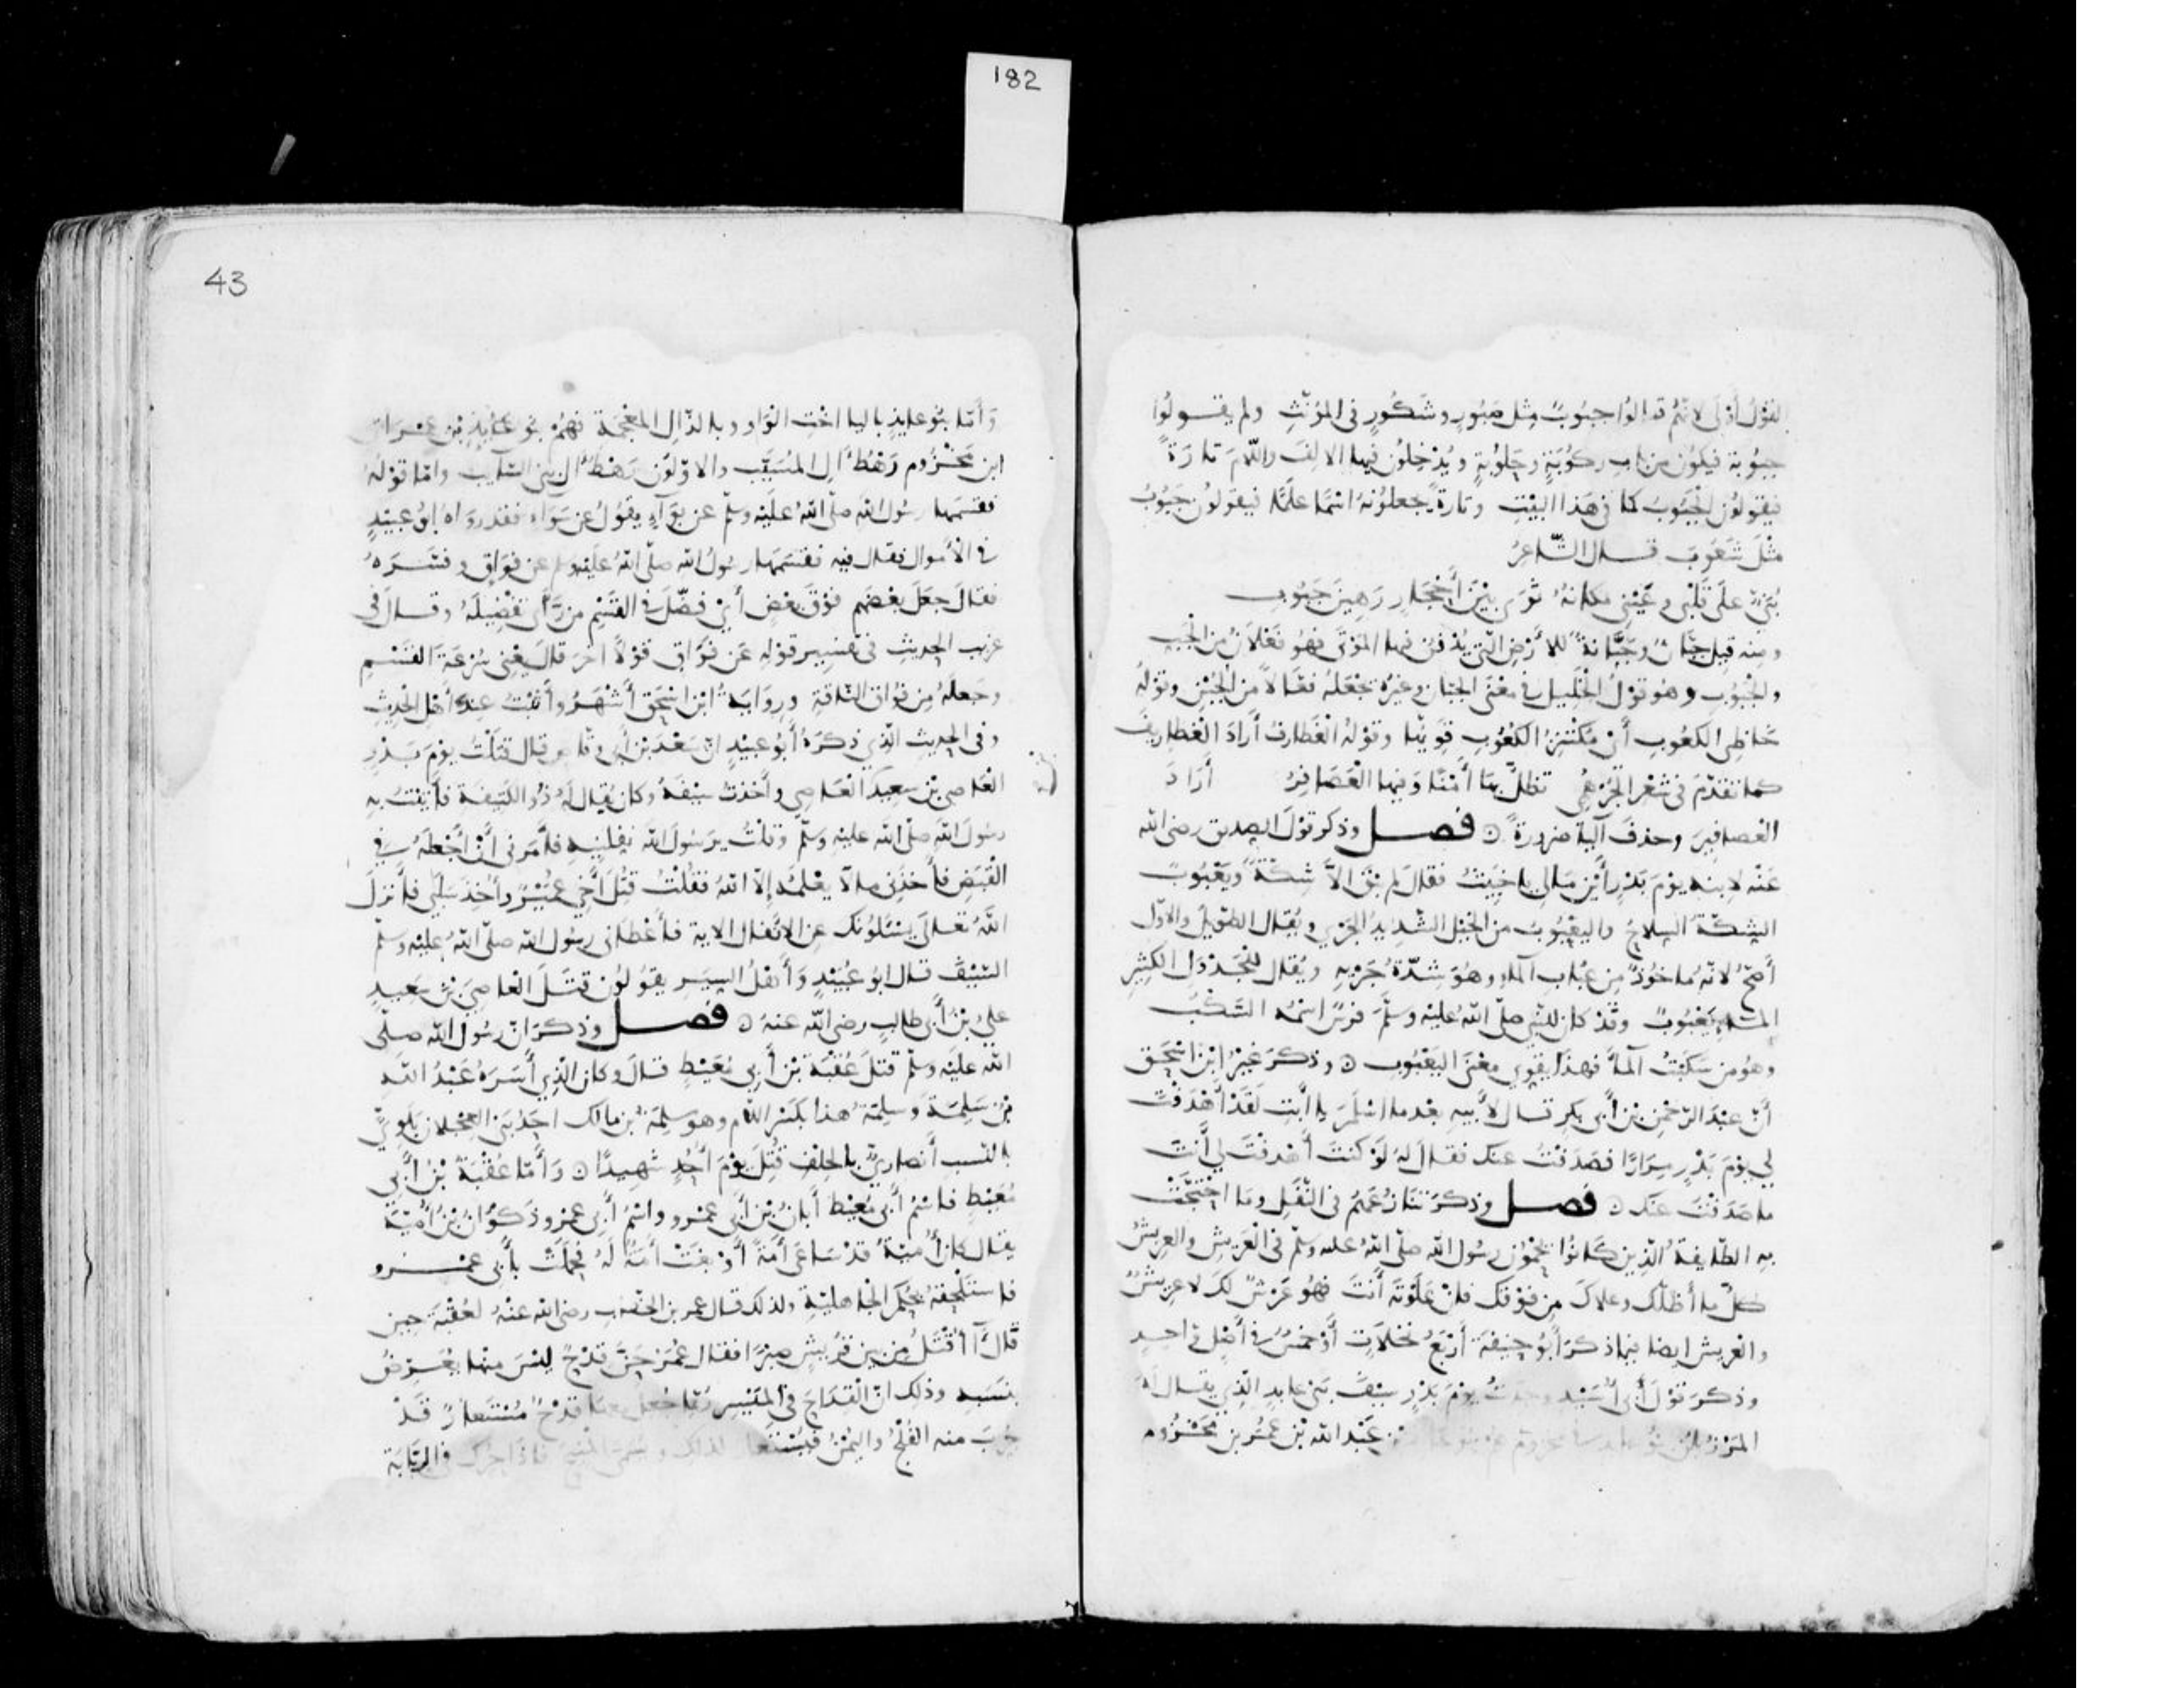 182
القول أولى لانهم قد قالوا جبوبٌ مثل صَبُورٍ وشَكُورٍ في المؤنث ولم يقولوا
جبوبة فيكون من باب ركُوبَةٍ وحَلُوبةٍ ويُدْخِلُون فيها الالفَ واللّامَ تارَةً
فيقولون الجَبُوبُ كما في هَذا البيْتِ وتارةً يجعلونهُ اسْمًا عَلَمًا فيقولون جَبُوبُ
مثْلَ شَعُوبَ قال الشّاعرُ
بَنَى علَى قَلْبي وعَيْني مكانهُ ثوَى بيْنَ أحْجَارٍ رَهينَ جَبُوبِ
ومنه قيل جبّانٌ وجبّانةٌ للأرْضِ التي يُدْفَنُ فيها المَوْتَى فهو فَعْلَانٌ من الجَبِّ
والجَبُوبِ وهُو قوْلُ الخليل في معْنَى الجبّان وغيرهُ يجْعَلهُ فعّالًا من الجُبْنِ وقولهُ
خاظِي الكعُوبِ أيْ مكْتنِزُ الكعُوبِ قويُّها وقولهُ الغَطارفُ أرَادَ الغَطاريفَ
كما تقدّم في شعْر الجُرْهُمي تظلّ بها أمْنًا وفيها العَصَافِرُ أرَادَ
العصافيرَ وحذفَ آلياءَ ضرورةً ۞ فصل وذكر قوْلَ الصديق رضي الله
عنْه لابنه يوْمَ بَدْرٍ أيْنَ مَالي يا خَبيثُ فقالَ لم يبْقَ الّا شِكّةٌ ويَعْبُوبْ
الشِّكّةُ السِّلاحُ واليعْبُوبُ من الخيْل الشّديدُ الجَرْيِ ويُقال الطّويلُ والاوّل
أصَحُّ لانّهُ ماخُوذٌ من عُبَابِ آلماءِ وهُوَ شِدّةُ جَرْيهِ ويُقال للجَدْوَلِ الكثيرِ
المـاءِ يَعْبُوبٌ وقَدْ كان للنبي صلّى اللهُ عليْه وسلّم فرَسٌ اسْمُهُ السَّكْبُ
وهُو من سَكَبْتُ آلماءَ فهذا يقوي معْنَى اليَعْبُوبِ ۞ وذكر غيْرُ ابْن اسْحَق
أنّ عبْدَ الرّحْمَن بْنَ أبي بكرٍ قال لأبيهِ بعْدما اسْلَمَ يا أبَتِ لَقَدْ أَهْدَفْتَ
لي يوْمَ بَدْرٍ مِرَارًا فصَدَفْتُ عنك فقالَ لهُ لَوْ كنتَ أهْدفْتَ لي أنتَ
ما صَدَفْتُ عَنك ۞ فصل وذكرَ تنَازُعَهُمْ في النّفَلِ ومَا احْتَجّتْ
بهِ الطّايفةُ الذين كَانُوا يحْمُون رسُول الله صلّى اللهُ عليه وسلّم في العَريشِ والعريشُ
كُلّ ما أظلّك وعلاكَ من فوْقك فانْ علَوْتهُ أنتَ فهُو عَرْشٌ لكَ لا عريشٌ
والعريش ايضا فيما ذكرَ أبُو حنيفةَ أرْبَعُ نخلاَتٍ أوْ خمْسٌ في أصْلٍ واحدٍ
وذكرَ قوْلَ أبي أُسَيْدٍ وجدْتُ يوْمَ بَدْرٍ سيْفَ بَني عابدٍ الّذي يقال لهُ
المَرْزُبَانُ بنُو عابد بن عَبْد الله بْن عُمَر بن مَخْزُوم
43
وَأمّا بنُو عايذٍ باليا اخْتِ الوَاو وبالذّال المعْجَمَة فهُمْ بنُو عَايذِ بْن عِمْرَانَ
ابن مَخْزُوم رَهْطُ آل المُسَيّب والاوّلُون رَهْطُ آل بني السّايب وامّا قوْلهُ
فقسَمَها رسُولُ اللهِ صلّى اللهُ عليْه وسلّم عن بوَآءٍ يقُولُ عن سَوَاءٍ فقد رواهُ أبُو عبيْدٍ
في الأمْوال فقال فيه فقسَمَها رسُولُ الله صلّى اللهُ عليْه وسلّم عن فوَاقٍ وفسَّرَهُ
فقالَ جعَلَ بعْضَهم فوْقَ بعْضٍ أيْ فضّلَ في القَسْمِ مَنْ رَأى تفْضِيلَهُ وقالَ في
غريب الحديثِ في تفسيرِ قوْلهِ عَن فوَاقٍ قوْلاً آخَرَ قالَ يعْني سُرْعَةَ القَسْمِ
وجَعلَهُ مِن فوَاقِ النّاقةِ وروايَةُ ابْن اسْحَق أشْهَرُ وأثْبَتُ عنْدَ أهْلِ الحديثِ
وفي الحديث الّذي ذكرَهُ أبُو عبيْدٍ انّ سَعْدَ بْنَ أبي وقّاصٍ قال قتَلْتُ يوْمَ بَدْرٍ
العَاصي بْنَ سعيد بن العَاصي وأخذتُ سيْفَهُ وكان يُقال لَهُ ذُو الكتيفَة فأتيْتُ بهِ
رسُولَ اللهِ صلّى الله عليْهِ وسلّم وقلْتُ يرَسُولَ الله نفِّلنِيهِ فأمَرَني أنْ أجْعَلَهُ في
القَبَضِ فأخذَني ما لا يعْلَمُهُ إلّا اللهُ فقُلْتُ قُتِلَ أخي عُمَيْرٌ وأُخِذَ سَلَبي فأنزلَ
اللهُ تعالَى يَسْئَلُونَك عنِ الانْفال الاية فأعْطاني رسُول الله صلّى اللهُ عليْه وسلّم
السّيْفَ قال أبُو عبَيْدٍ وَأهْلُ السِّيَرِ يقُولُونَ قتَلَ العَاصيَ بْنَ سَعيدٍ
عليُّ بْنُ أبي طالبٍ رضي الله عنهُ ۞ فصل وذكرَ انّ رسُول الله صلّى
الله عليْه وسلّم قتَلَ عُقْبَةَ بْنَ أبي مُعَيْطٍ قالَ وكان الذي أَسَرَهُ عَبْدُ اللهِ
بْنُ سَلِمَةَ وَسلِمَةُ هذا بكسْرِ اللام وهو سلِمَةُ بْن مالك احَدُ بَني العجْلان بَلَوِيُّ
بالنّسب أنصاريٌّ بالحلفِ قُتِلَ يوْمَ أُحُدٍ شهيدًا ۞ وَأمّا عُقْبَةُ بْنُ أبي
مُعَيْطٍ فاسْمُ أبي مُعيْط أبَانُ بْنُ أبي عَمْرو واسْمُ أبي عمْرو ذَكوَانُ بْنُ أُميّةَ
يقال كان أُميّةُ قدْ سَاعَى أمَةً أوْ بغَتْ أمَةٌ لَهُ فحَمَلَتْ بأبي عمْرو
فاستلْحَقهُ بحُكْم الجاهليّةِ ولذلك قال عمر بن الخطاب رضي الله عنْهُ لعُقْبَة حين
قالَ أأُقْتَلُ من بين قرَيْشٍ صبْرًا فقال عُمَرُ حَنَّ قدْحٌ ليْسَ منْها يعَرّضُ
بنسَبه وذلك انّ القدَاحَ في المَيْسِر رُبّما جُعِلَ معَها قدْحٌ مُسْتَعارٌ قَدْ
جُرّبَ منه الفَلْجُ واليُمْنُ فيُسْتَعارُ لذلك ويُسَمّى المَنِيحَ فاذا حُرّكَ في الرّبَابَة